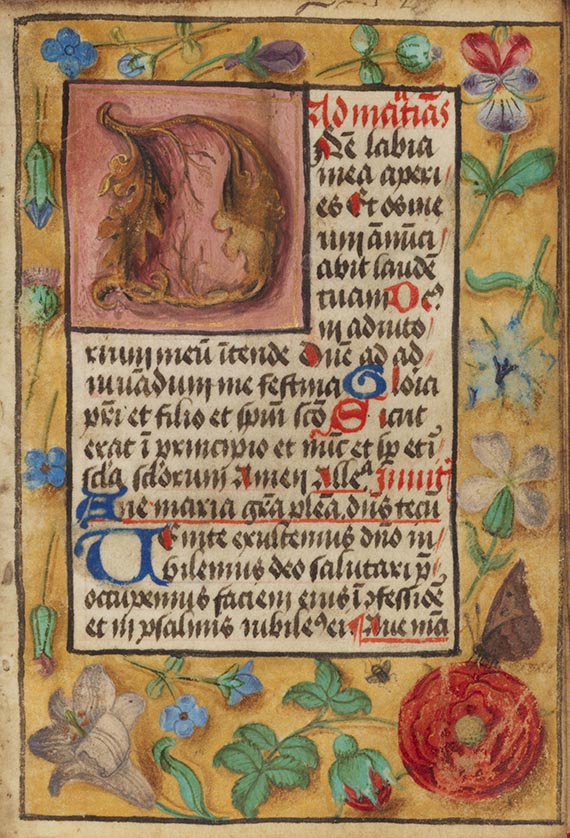 Ad matutinas
Dñe labia
mea aperi/
es Et os me
um ãnuci/
abit laudẽ
tuam Deꝰ
in adiuto/
rium meũ ĩtende Dñe ad ad/
iuuãdum me festina Gloria
pr̃i et filio et spũi scõ Sicut
erat ĩ principio et nũc et sp̱ et ĩ
scl̃a scl̃orum Amen Alleᵃ Inuitᵗ
Aue maria gr̃a plẽa, dñs tecũ
Uenite exultemus dño iu/
bilemus deo salutari
occupemus faciem eius ĩ ꝯfessiõe
et in psalmis iubileꝰ ei Aue mr̃ia